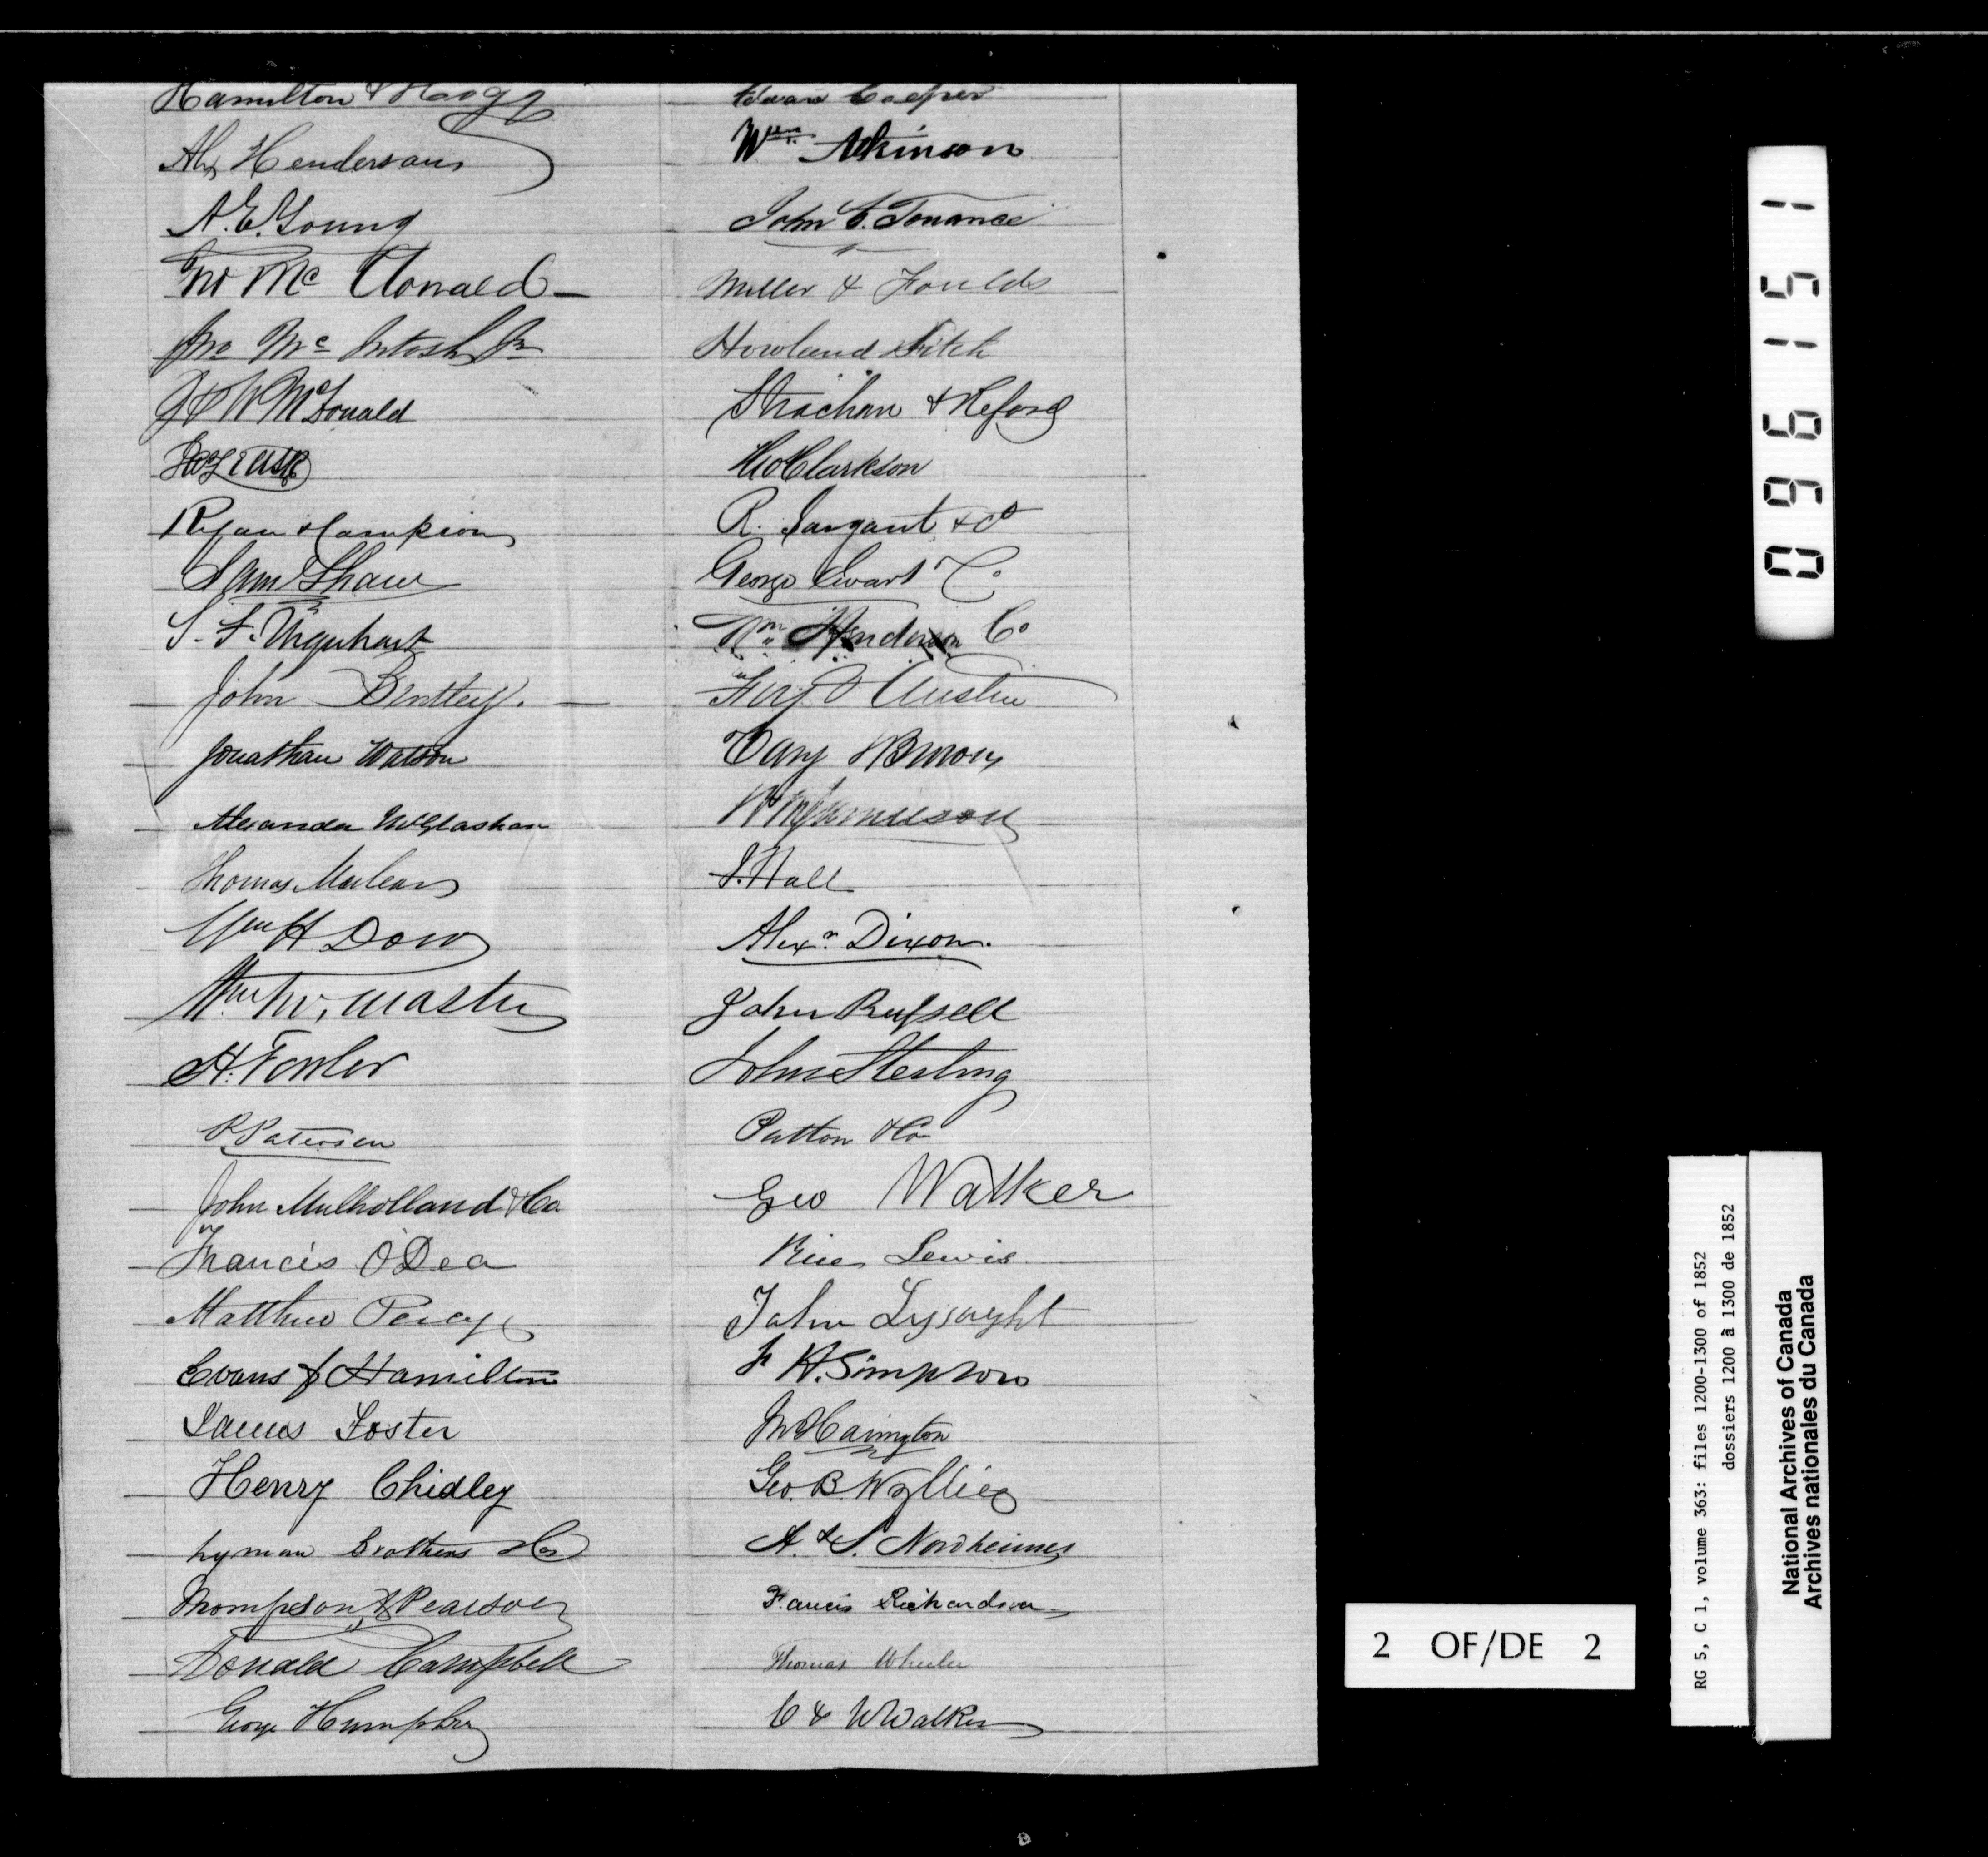 Hamilton & Hogg
Alex Henderson
A. E. Young
Mc Donald
Jno Mc Intosh Jr
J & W McDonald
Ryan & Campion
Sam Shaw
S. F. Urquhart
John Bentley.
Jonathan Watson
Alexander McGlashan
Thomas Maclear
Wm H Dow
Wm McMaster
H. Fowler
P. Paterson
John Mulholland & Co
Francis O'Dea
Matthew Percy
Evans & Hamilton
James Foster
Henry Chidley
Lyman Brothers & Co
Thompson & Pearson
Donald Campbell
George Humphrey
Edward Cooper
Wm Atkinson
John C. Torrance
Miller & Foulds
Howland & Fitch
Strachan & Reford
Clarkson
R. Sargant & Co
George Ewart Co
Wm Henderson Co
Foy & Austin
Cary & Brown
W M Jamieson
J. Hall
Alexr Dixon.
John Russell
John Sterling
Patton & Co
Geo Walker
Rice Lewis
John Lysaght
H. Simpson
Harrington
Geo. B. Wyllie
A. & S. Nordheimer
Francis Richardson
Thomas Wheeler
C & W Walker
096151
2 OF/DE 2
RG 5, C 1, volume 363: files 1200-1300 of 1852
dossiers 1200 à 1300 de 1852
National Archives of Canada
Archives nationales du Canada